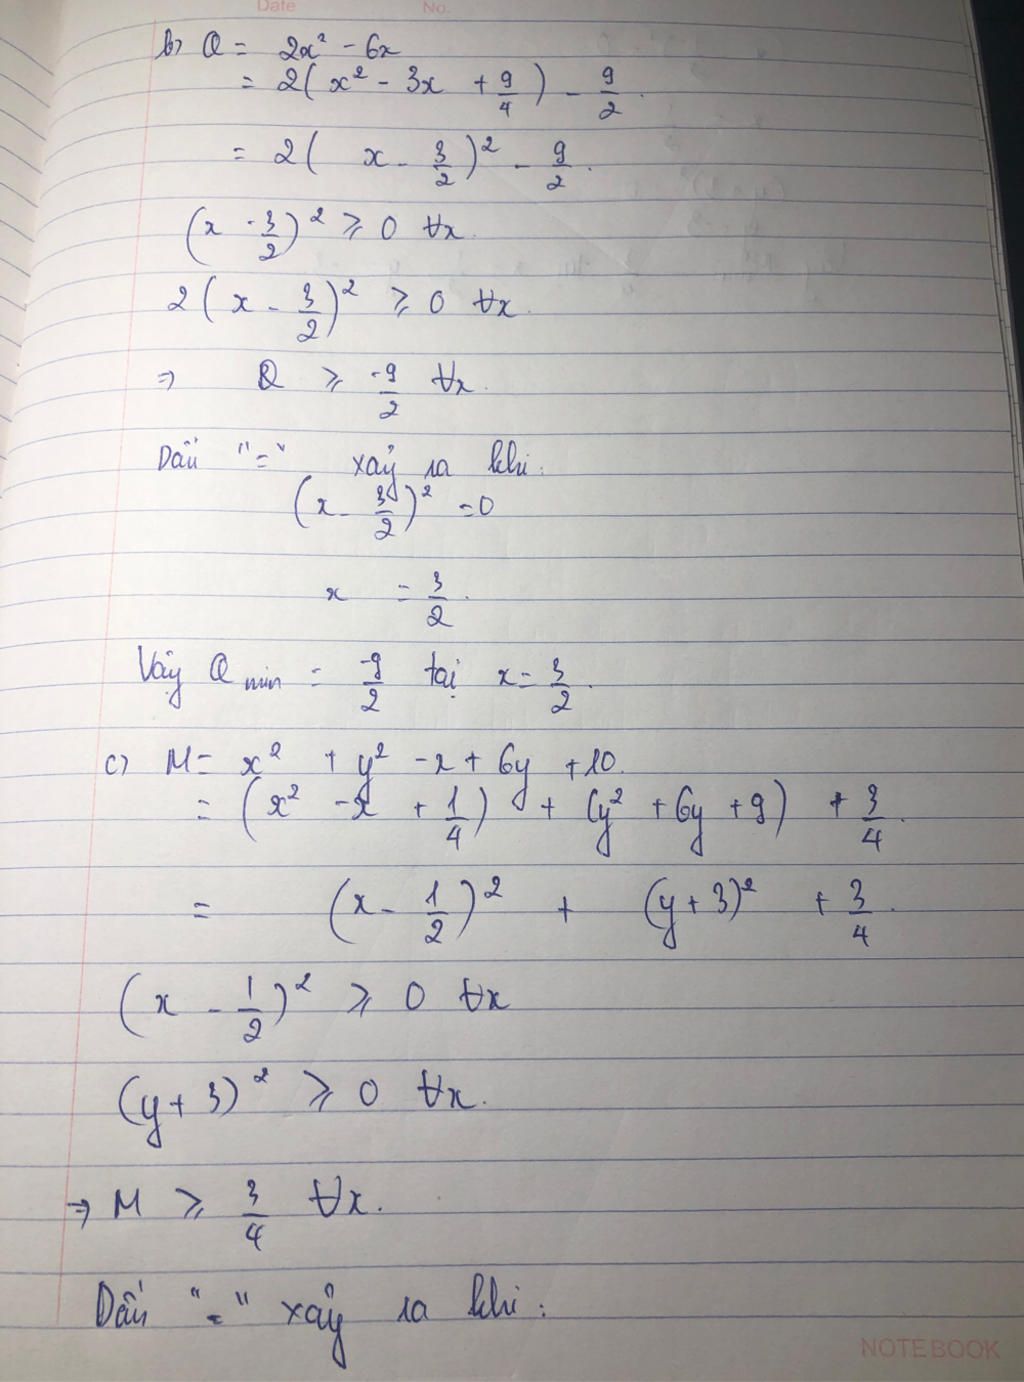 Date No.
b) Q = 2x² - 6x
= 2( x² - 3x + 9/4 ) - 9/2.
= 2( x - 3/2 )² - 9/2.
(x - 3/2)² ⩾ 0 ∀x.
2( x - 3/2 )² ⩾ 0 ∀x.
⇒ Q ⩾ -9/2 ∀x.
Dấu "=" xảy ra khi:
(x - 3/2)² = 0
x = 3/2.
Vậy Q min = -9/2 tại x = 3/2.
c) M = x² + y² - x + 6y + 10.
= (x² - x + 1/4) + (y² + 6y + 9) + 3/4.
= (x - 1/2)² + (y + 3)² + 3/4.
(x - 1/2)² ⩾ 0 ∀x
(y + 3)² ⩾ 0 ∀x.
⇒ M ⩾ 3/4 ∀x.
Dấu "=" xảy ra khi:
NOTEBOOK